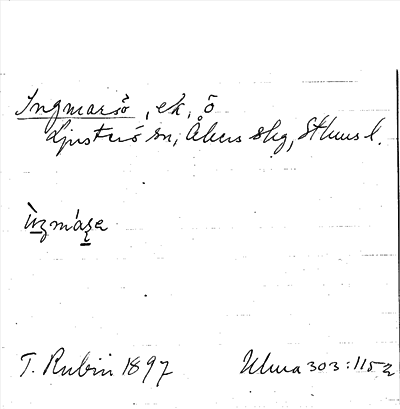 Ingmarsö, ek, ö
Ljusterö sn, Åkers skg, Sthms l.
T. Rubin 1897 Ulma 303:115